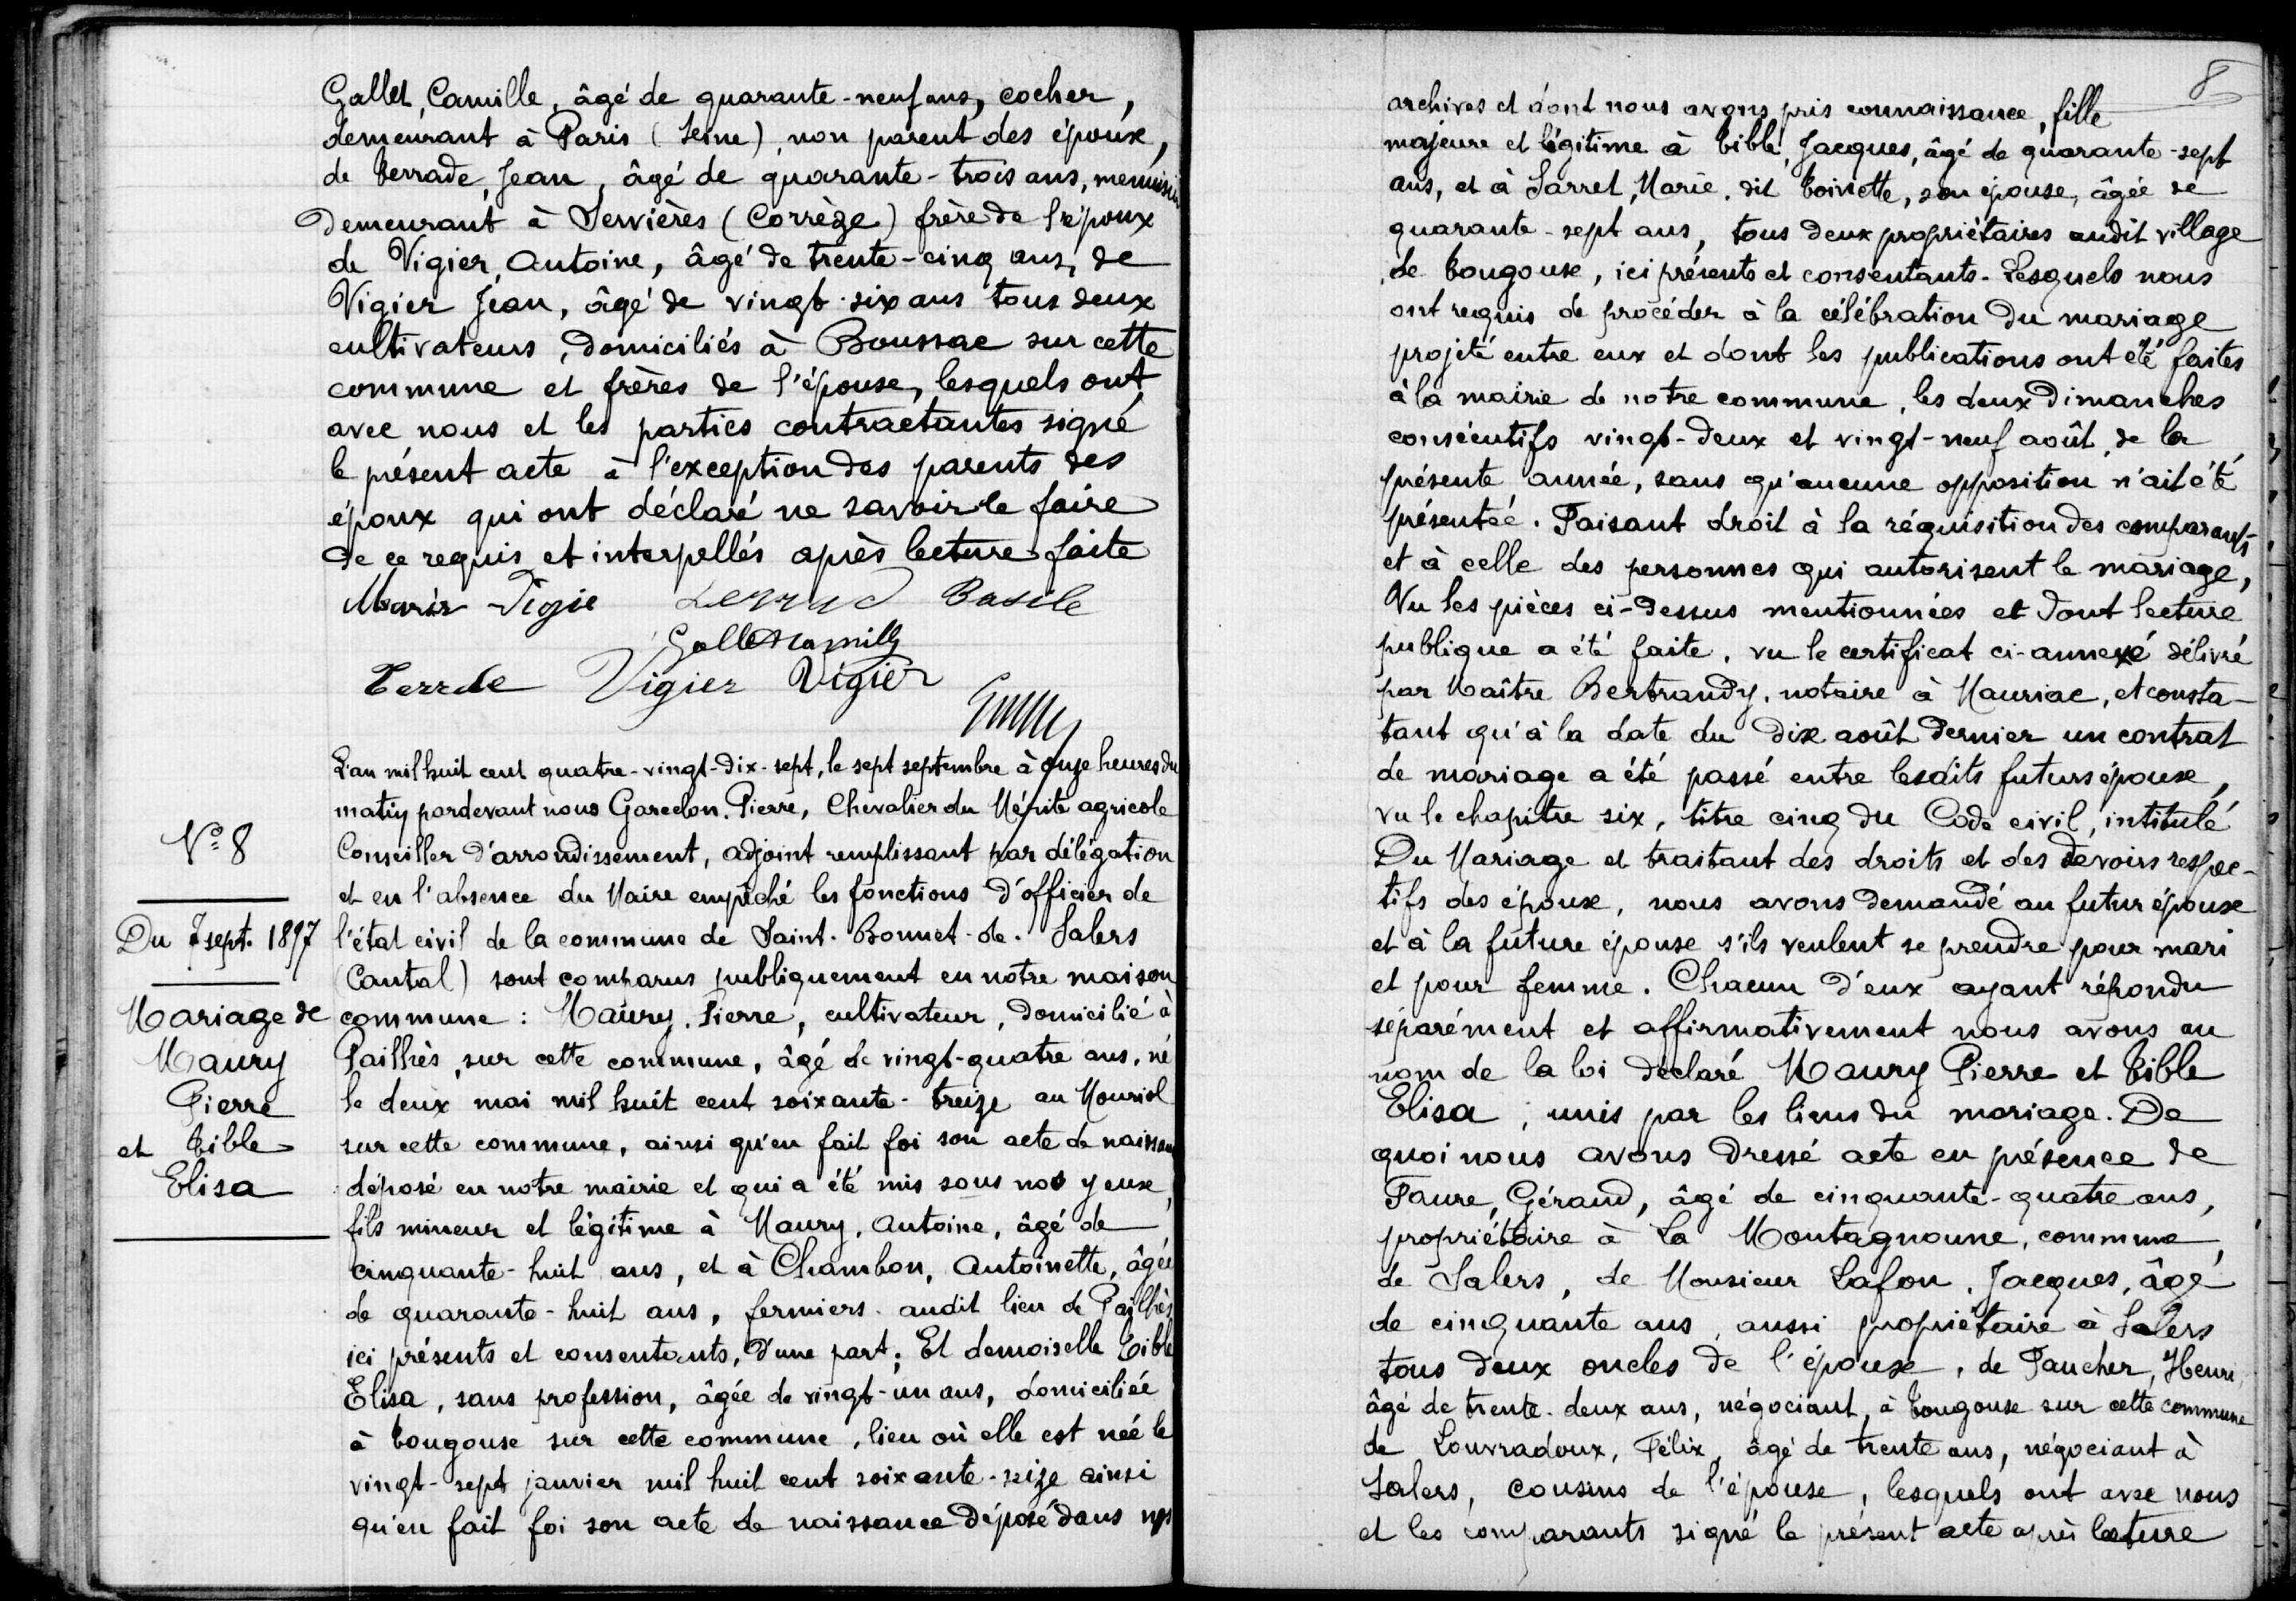 Gallet, Camille, âgé de quarante-neuf ans, cocher,
demeurant à Paris (Seine), non parent des époux,
de Terrade, Jean, âgé de quarante-trois ans, menuisier
demeurant à Servières (Corrèze) frère de l'époux
de Vigier, Antoine, âgé de trente-cinq ans, de
Vigier Jean, âgé de vingt-six ans tous deux
cultivateurs, domiciliés à Boussac sur cette
commune et frères de l'épouse, lesquels ont
avec nous et les parties contractantes signé
le présent acte à l'exception des parents des
époux qui ont déclaré ne savoir le faire
de ce requis et interpellés après lecture faite
Vigie Basile
Vigier Vigier
N° 8
Du 7 sept. 1897
Mariage de
Maury
Pierre
et Tible
Elisa
L'an mil huit cent quatre-vingt-dix-sept, le sept septembre à onze heures du
matin pardevant nous Garcelon, Pierre, Chevalier du Mérite agricole
Conseiller d'arrondissement, adjoint remplissant par délégation
et en l'absence du Maire empêché les fonctions d'officier de
l'état civil de la commune de Saint-Bonnet-de-Salers
(Cantal) sont comparus publiquement en notre maison
commune : Maury, Pierre, cultivateur, domicilié à
Pailhès, sur cette commune, âgé de vingt-quatre ans, né
le deux mai mil huit cent soixante-treize au Mouriol
sur cette commune, ainsi qu'en fait foi son acte de naissance
déposé en notre mairie et qui a été mis sous nos yeux,
fils mineur et légitime à Maury, Antoine, âgé de
cinquante-huit ans, et à Chambon, Antoinette, âgée
de quarante-huit ans, fermiers audit lieu de Pailhès
ici présents et consentants, d'une part; Et demoiselle Tible
Elisa, sans profession, âgée de vingt-un ans, domiciliée
à Tougouse sur cette commune, lieu où elle est née le
vingt-sept janvier mil huit cent soixante-seize ainsi
qu'en fait foi son acte de naissance déposé dans nos
8
archives et dont nous avons pris connaissance, fille
majeure et légitime à Tible, Jacques, âgé de quarante-sept
ans, et à Sarret, Marie, dit Toinette, son épouse, âgée de
quarante-sept ans, tous deux propriétaires audit village
de Tougouse, ici présents et consentants. Lesquels nous
ont requis de procéder à la célébration du mariage
projeté entre eux et dont les publications ont été faites
à la mairie de notre commune, les deux dimanches
consécutifs vingt-deux et vingt-neuf août, de la
présente année, sans qu'aucune opposition n'ait été
présentée. Faisant droit à la réquisition des comparants
et à celle des personnes qui autorisent le mariage,
Vu les pièces ci-dessus mentionnées et dont lecture
publique a été faite, vu le certificat ci-annexé délivré
par Maître Bertrandy, notaire à Mauriac, et consta-
tant qu'à la date du dix août dernier un contrat
de mariage a été passé entre lesdits futurs époux,
vu le chapitre six, titre cinq du Code civil, intitulé
Du Mariage et traitant des droits et des devoirs respec-
tifs des époux, nous avons demandé au futur époux
et à la future épouse s'ils veulent se prendre pour mari
et pour femme. Chacun d'eux ayant répondu
séparément et affirmativement nous avons au
nom de la loi déclaré Maury Pierre et Tible
Elisa, unis par les liens du mariage. De
quoi nous avons dressé acte en présence de
Faure, Géraud, âgé de cinquante-quatre ans,
propriétaire à La Montagnoune, commune
de Salers, de Monsieur Lafon, Jacques, âgé
de cinquante ans, aussi propriétaire à Salers
tous deux oncles de l'épouse, de Faucher, Henri,
âgé de trente-deux ans, négociant, à Tougouse sur cette commune
de Louvradoux, Félix, âgé de trente ans, négociant à
Salers, cousins de l'épouse, lesquels ont avec nous
et les comparants signé le présent acte après lecture